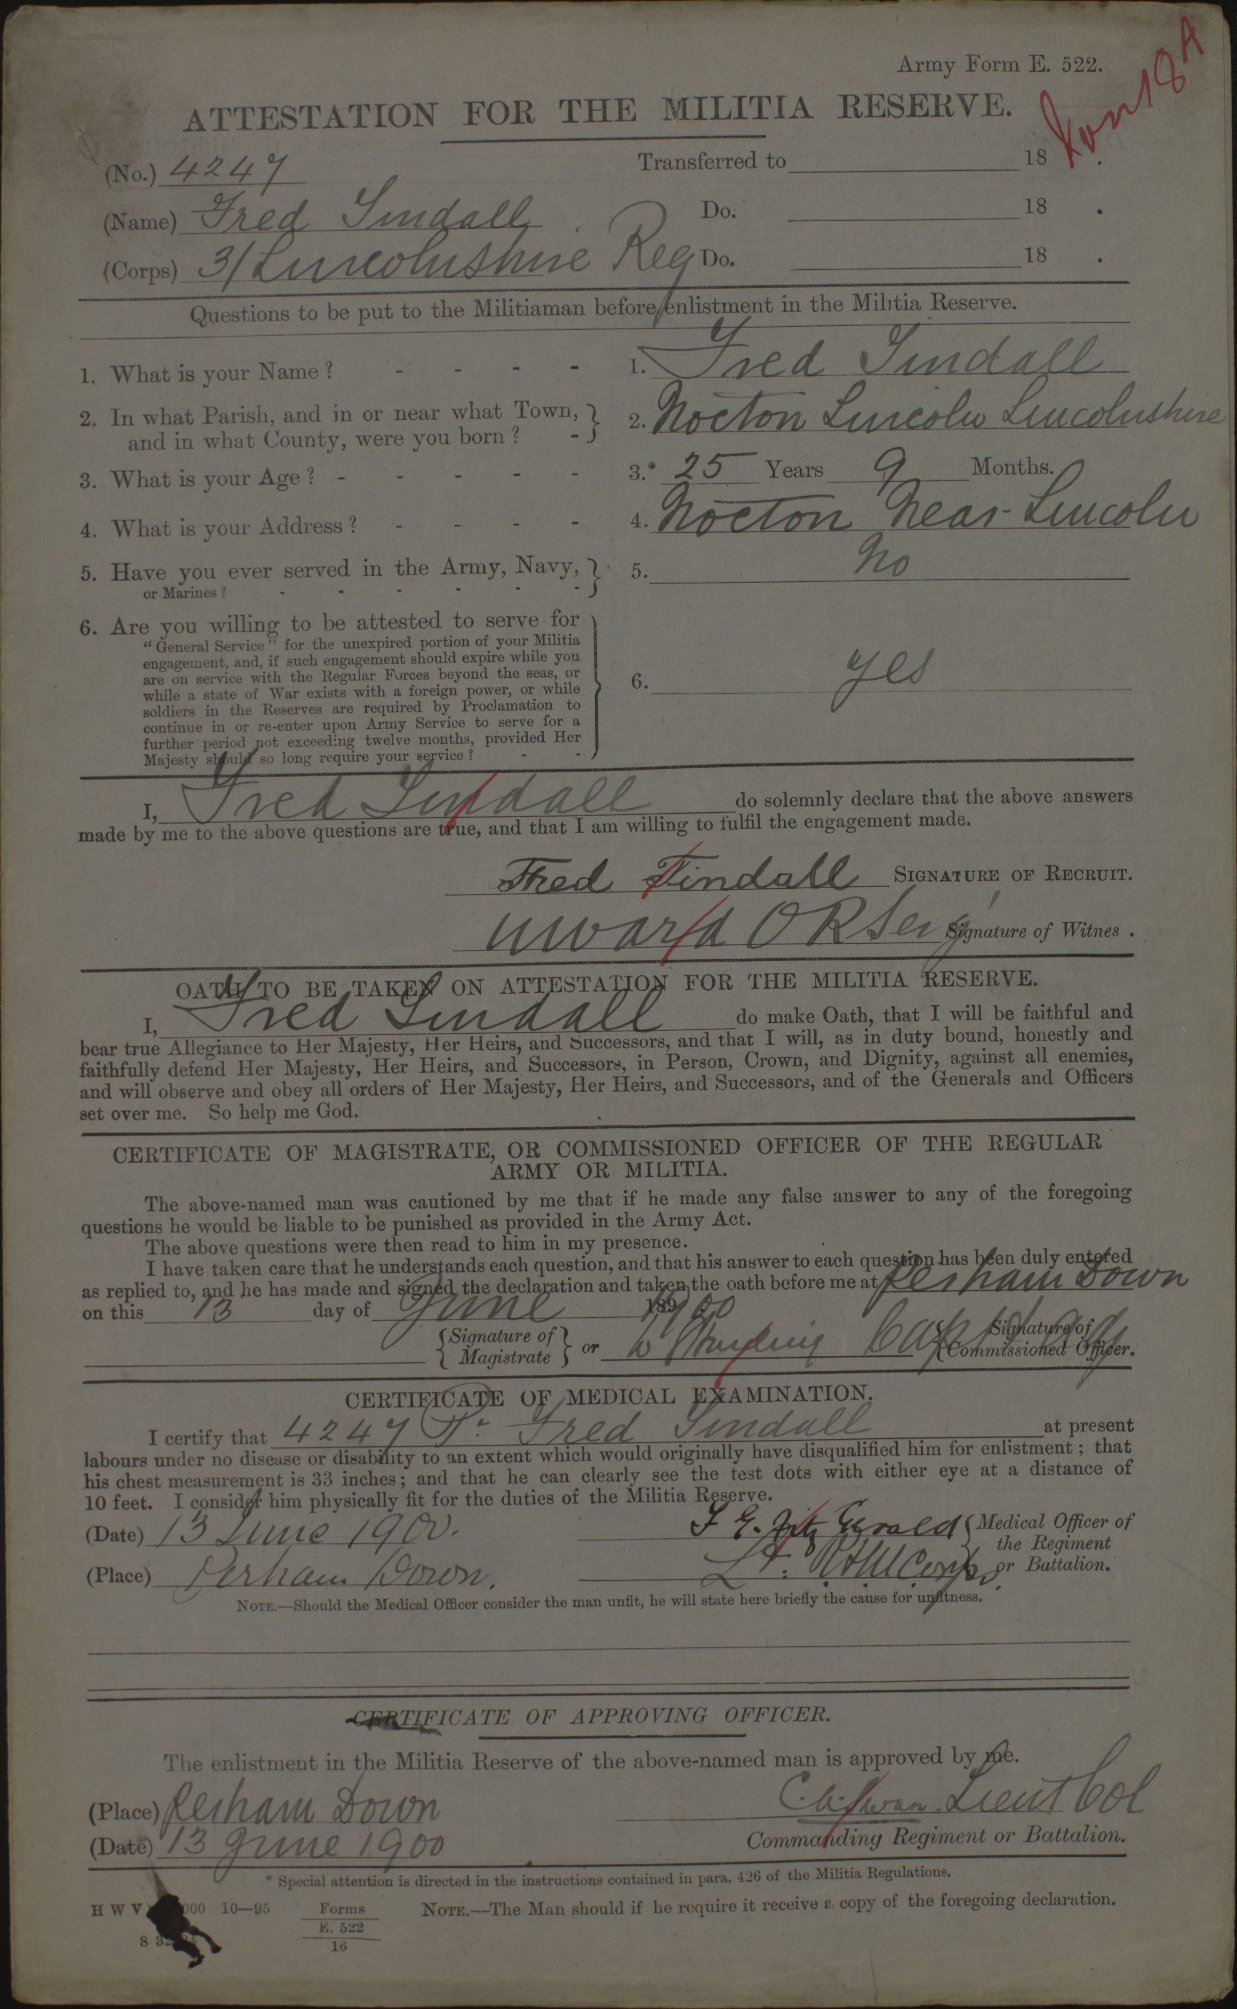 Army Form E. 522.
ATTESTATION FOR THE MILITIA RESERVE.
(No.) 4247 Transferred to 18 .
(Name) Fred Tindall Do. 18 .
(Corps) 3/Lincolnshire Reg Do. 18 .
Questions to be put to the Militiaman before enlistment in the Militia Reserve.
1. What is your Name ? - - - - 1. Fred Tindall
2. In what Parish, and in or near what Town, and in what County, were you born ? - 2. Nocton Lincoln Lincolnshire
3. What is your Age ? - - - - - 3.* 25 Years 9 Months.
4. What is your Address ? - - - - 4. Nocton Near Lincoln
5. Have you ever served in the Army, Navy, or Marines ? - - - - - - 5. No
6. Are you willing to be attested to serve for
"General Service" for the unexpired portion of your Militia
engagement, and, if such engagement should expire while you
are on service with the Regular Forces beyond the seas, or
while a state of War exists with a foreign power, or while
soldiers in the Reserves are required by Proclamation to
continue in or re-enter upon Army Service to serve for a
further period not exceeding twelve months, provided Her
Majesty should so long require your service ? - - 6. Yes
I, Fred Tindall do solemnly declare that the above answers
made by me to the above questions are true, and that I am willing to fulfil the engagement made.
Fred Tindall SIGNATURE OF RECRUIT.
Ward OR Serg Signature of Witnes .
OATH TO BE TAKEN ON ATTESTATION FOR THE MILITIA RESERVE.
I, Fred Tindall do make Oath, that I will be faithful and
bear true Allegiance to Her Majesty, Her Heirs, and Successors, and that I will, as in duty bound, honestly and
faithfully defend Her Majesty, Her Heirs, and Successors, in Person, Crown, and Dignity, against all enemies,
and will observe and obey all orders of Her Majesty, Her Heirs, and Successors, and of the Generals and Officers
set over me. So help me God.
CERTIFICATE OF MAGISTRATE, OR COMMISSIONED OFFICER OF THE REGULAR
ARMY OR MILITIA.
The above-named man was cautioned by me that if he made any false answer to any of the foregoing
questions he would be liable to be punished as provided in the Army Act.
The above questions were then read to him in my presence.
I have taken care that he understands each question, and that his answer to each question has been duly entered
as replied to, and he has made and signed the declaration and taken the oath before me at Perham Down
on this 13 day of June 1900
Signature of Magistrate or Capt Adj Signature of Commissioned Officer.
CERTIFICATE OF MEDICAL EXAMINATION.
I certify that 4247 Pr. Fred Tindall at present
labours under no disease or disability to an extent which would originally have disqualified him for enlistment ; that
his chest measurement is 33 inches ; and that he can clearly see the test dots with either eye at a distance of
10 feet. I consider him physically fit for the duties of the Militia Reserve.
(Date) 13 June 1900. F G. Fitz Gerald Medical Officer of
the Regiment
(Place) Perham Down. Lt. RAMCorps. or Battalion.
NOTE.—Should the Medical Officer consider the man unfit, he will state here briefly the cause for unfitness.
CERTIFICATE OF APPROVING OFFICER.
The enlistment in the Militia Reserve of the above-named man is approved by me.
(Place) Perham Down C. A. Swan Lieut Col
(Date) 13 June 1900 Commanding Regiment or Battalion.
* Special attention is directed in the instructions contained in para. 426 of the Militia Regulations.
H W V 000 10—95 Forms E. 522 16 NOTE.—The Man should if he require it receive a copy of the foregoing declaration.